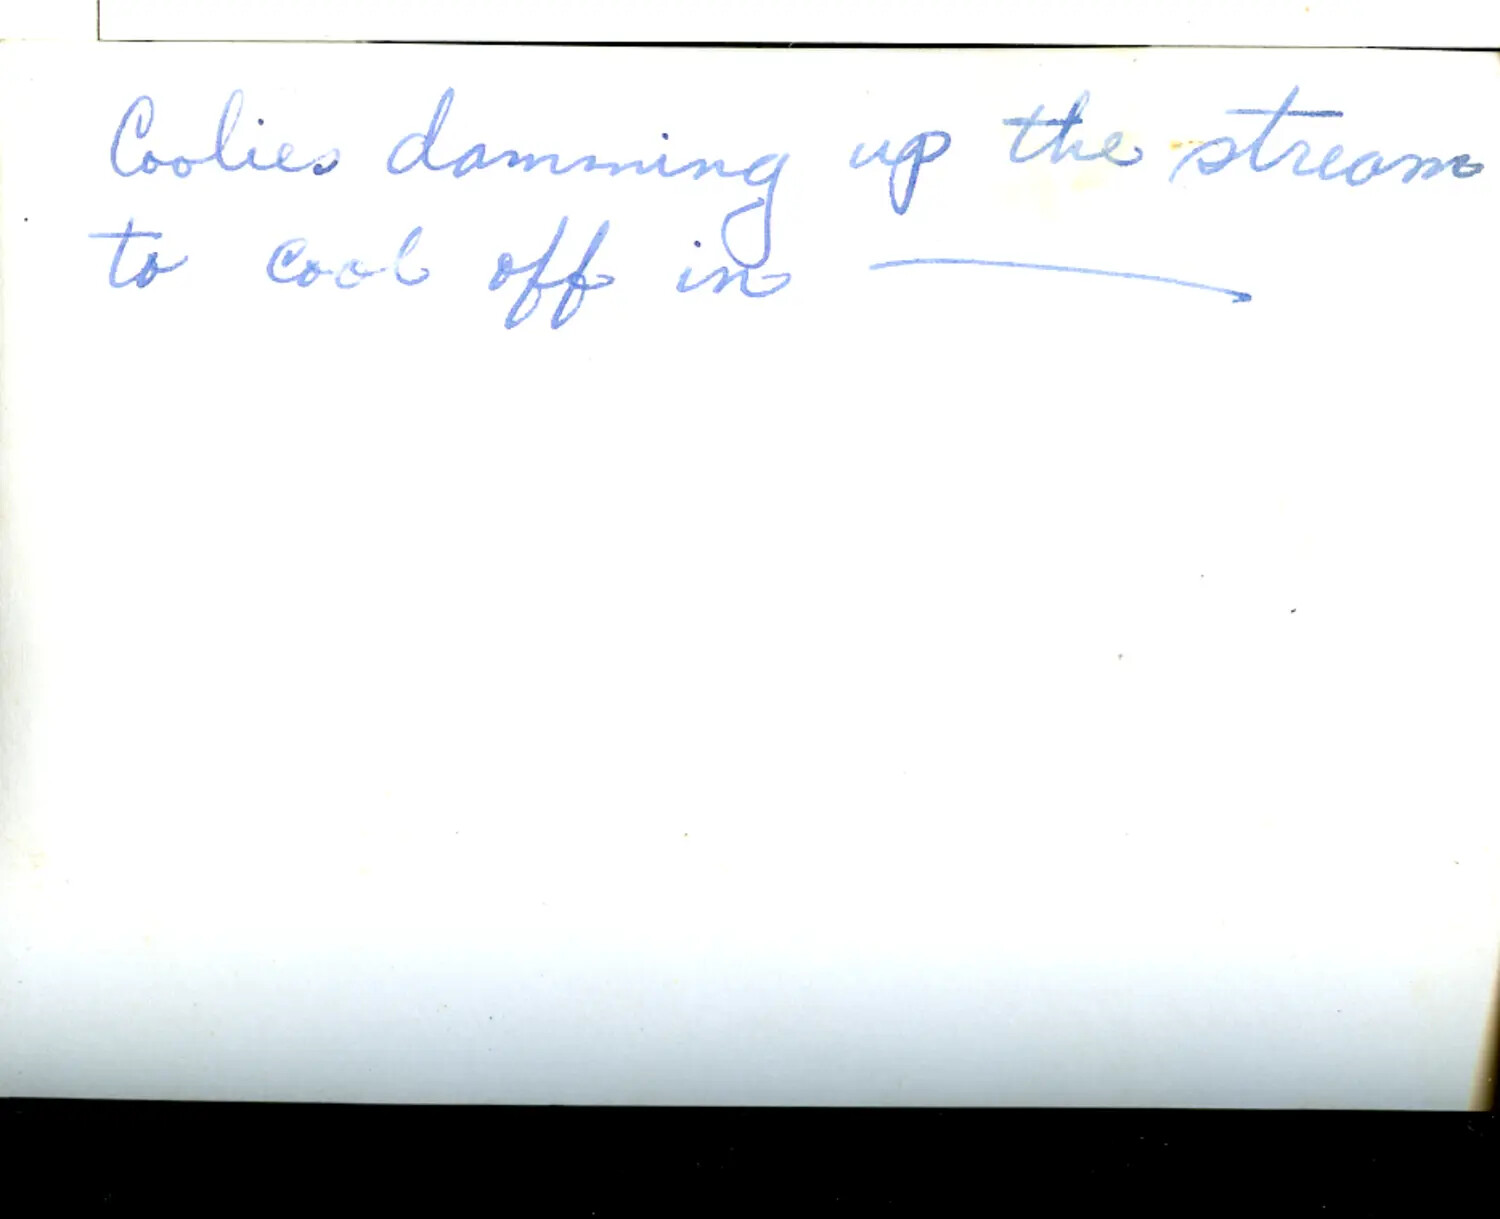 Coolies damming up the stream
to cool off in ———